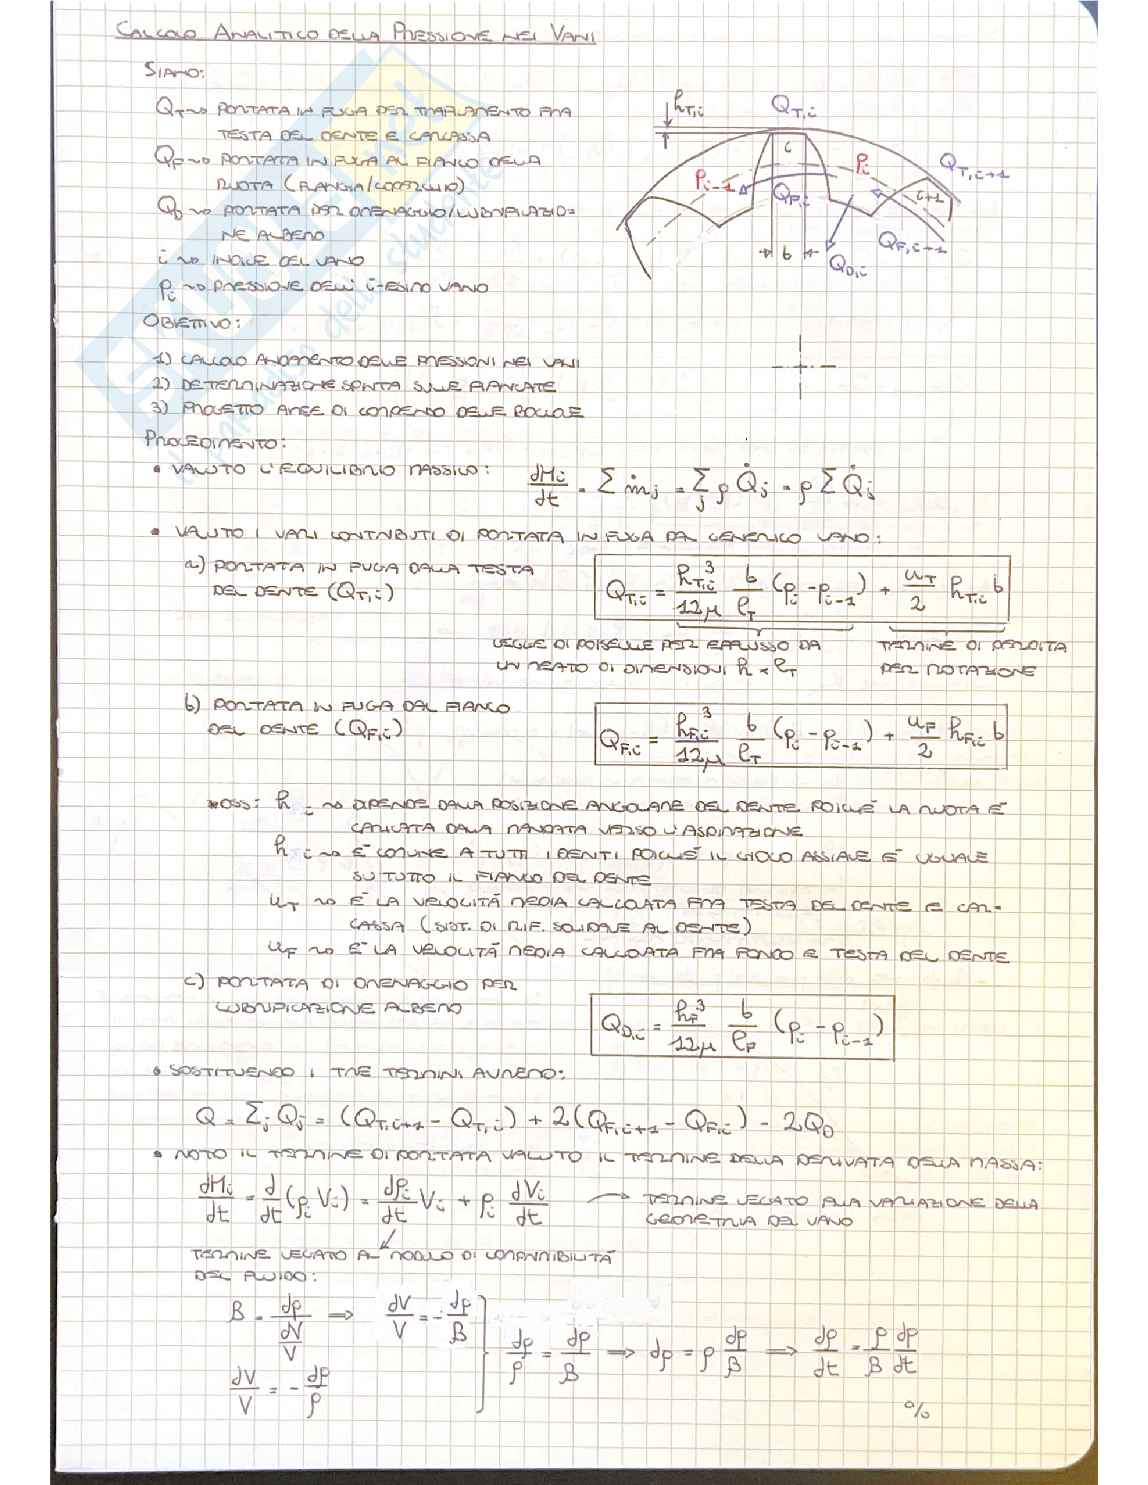 CALCOLO ANALITICO DELLA PRESSIONE NEI VANI
SIANO:
Q_T ~> PORTATA IN FUGA PER TRAFILAMENTO FRA
TESTA DEL DENTE E CARCASSA
Q_F ~> PORTATA IN FUGA AL FIANCO DELLA
RUOTA (FLANGIA/COPERCHIO)
Q_D ~> PORTATA PER DRENAGGIO/LUBRIFICAZIO-
NE ALBERO
i ~> INDICE DEL VANO
p_i ~> PRESSIONE DELL' i-ESIMO VANO
h_T,i
Q_T,i
i
p_i-1
p_i
Q_T,i+1
i+1
Q_F,i
Q_F,i+1
b
Q_D,i
OBIETTIVO:
1) CALCOLO ANDAMENTO DELLE PRESSIONI NEI VANI
2) DETERMINAZIONE SPINTA SULLE FIANCATE
3) PROGETTO AREE DI COMPENSO DELLE BOCCOLE
PROCEDIMENTO:
• VALUTO L'EQUILIBRIO MASSICO: dM_i/dt = Σ ṁ_j = Σ_j ρ Q̇_j = ρ Σ Q̇_j
• VALUTO I VARI CONTRIBUTI DI PORTATA IN FUGA DAL GENERICO VANO:
a) PORTATA IN FUGA DALLA TESTA
DEL DENTE (Q_T,i)
Q_T,i = h_T,i³/12μ b/ℓ_T (p_i - p_i-1) + u_T/2 h_T,i b
LEGGE DI POISEILLE PER EFFLUSSO DA
UN MEATO DI DIMENSIONI h × ℓ_T
TERMINE DI PERDITA
PER ROTAZIONE
b) PORTATA IN FUGA DAL FIANCO
DEL DENTE (Q_F,i)
Q_F,i = h_F,i³/12μ b/ℓ_T (p_i - p_i-1) + u_F/2 h_F,i b
*OSS: h_i ~> DIPENDE DALLA POSIZIONE ANGOLARE DEL DENTE POICHÉ LA RUOTA È
CARICATA DALLA MANDATA VERSO L'ASPIRAZIONE
h_i ~> È COMUNE A TUTTI I DENTI POICHÉ IL GIOCO ASSIALE È UGUALE
SU TUTTO IL FIANCO DEL DENTE
u_T ~> È LA VELOCITÀ MEDIA CALCOLATA FRA TESTA DEL DENTE E CAR-
CASSA (SIST. DI RIF. SOLIDALE AL DENTE)
u_F ~> È LA VELOCITÀ MEDIA CALCOLATA FRA FONDO E TESTA DEL DENTE
c) PORTATA DI DRENAGGIO PER
LUBRIFICAZIONE ALBERO
Q_D,i = h_F³/12μ b/ℓ_F (p_i - p_i-1)
• SOSTITUENDO I TRE TERMINI AVREMO:
Q = Σ_j Q_j = (Q_T,i+1 - Q_T,i) + 2(Q_F,i+1 - Q_F,i) - 2Q_D
• NOTO IL TERMINE DI PORTATA VALUTO IL TERMINE DELLA DERIVATA DELLA MASSA:
dM_i/dt = d/dt (ρ_i V_i) = dρ_i/dt V_i + ρ_i dV_i/dt → TERMINE LEGATO ALLA VARIAZIONE DELLA
GEOMETRIA DEL VANO
TERMINE LEGATO AL MODULO DI COMPRIMIBILITÀ
DEL FLUIDO:
B = dp/(dV/V) ⟹ dV/V = -dp/B
dV/V = -dρ/ρ
} dρ/ρ = dp/B ⟹ dρ = ρ dp/B ⟹ dρ/dt = ρ/B dp/dt
%